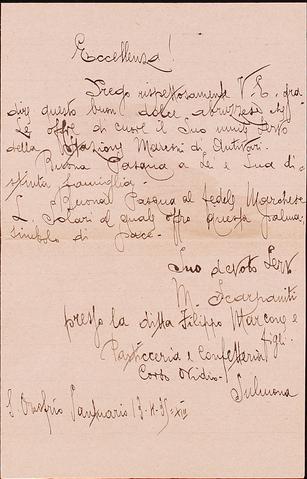 Eccellenza!
Prego rispettosamente V. E. gra
dire questo buon dolce abruzzese che
Le offre di cuore il Suo umile servo
della Stazione Marconi di
Buona Pasqua a Lei e Sua di=
stinta famiglia.
Buona Pasqua al fedele Marchese
L. Solari al quale offro questa palma,
simbolo di pace.
Suo devoto servo
M. Scarpanito
presso la ditta Filippo Marcone e
figli.
Pasticceria e Confetteria
Corso Ovidio.
Sulmona
S. Onofrio Santuario